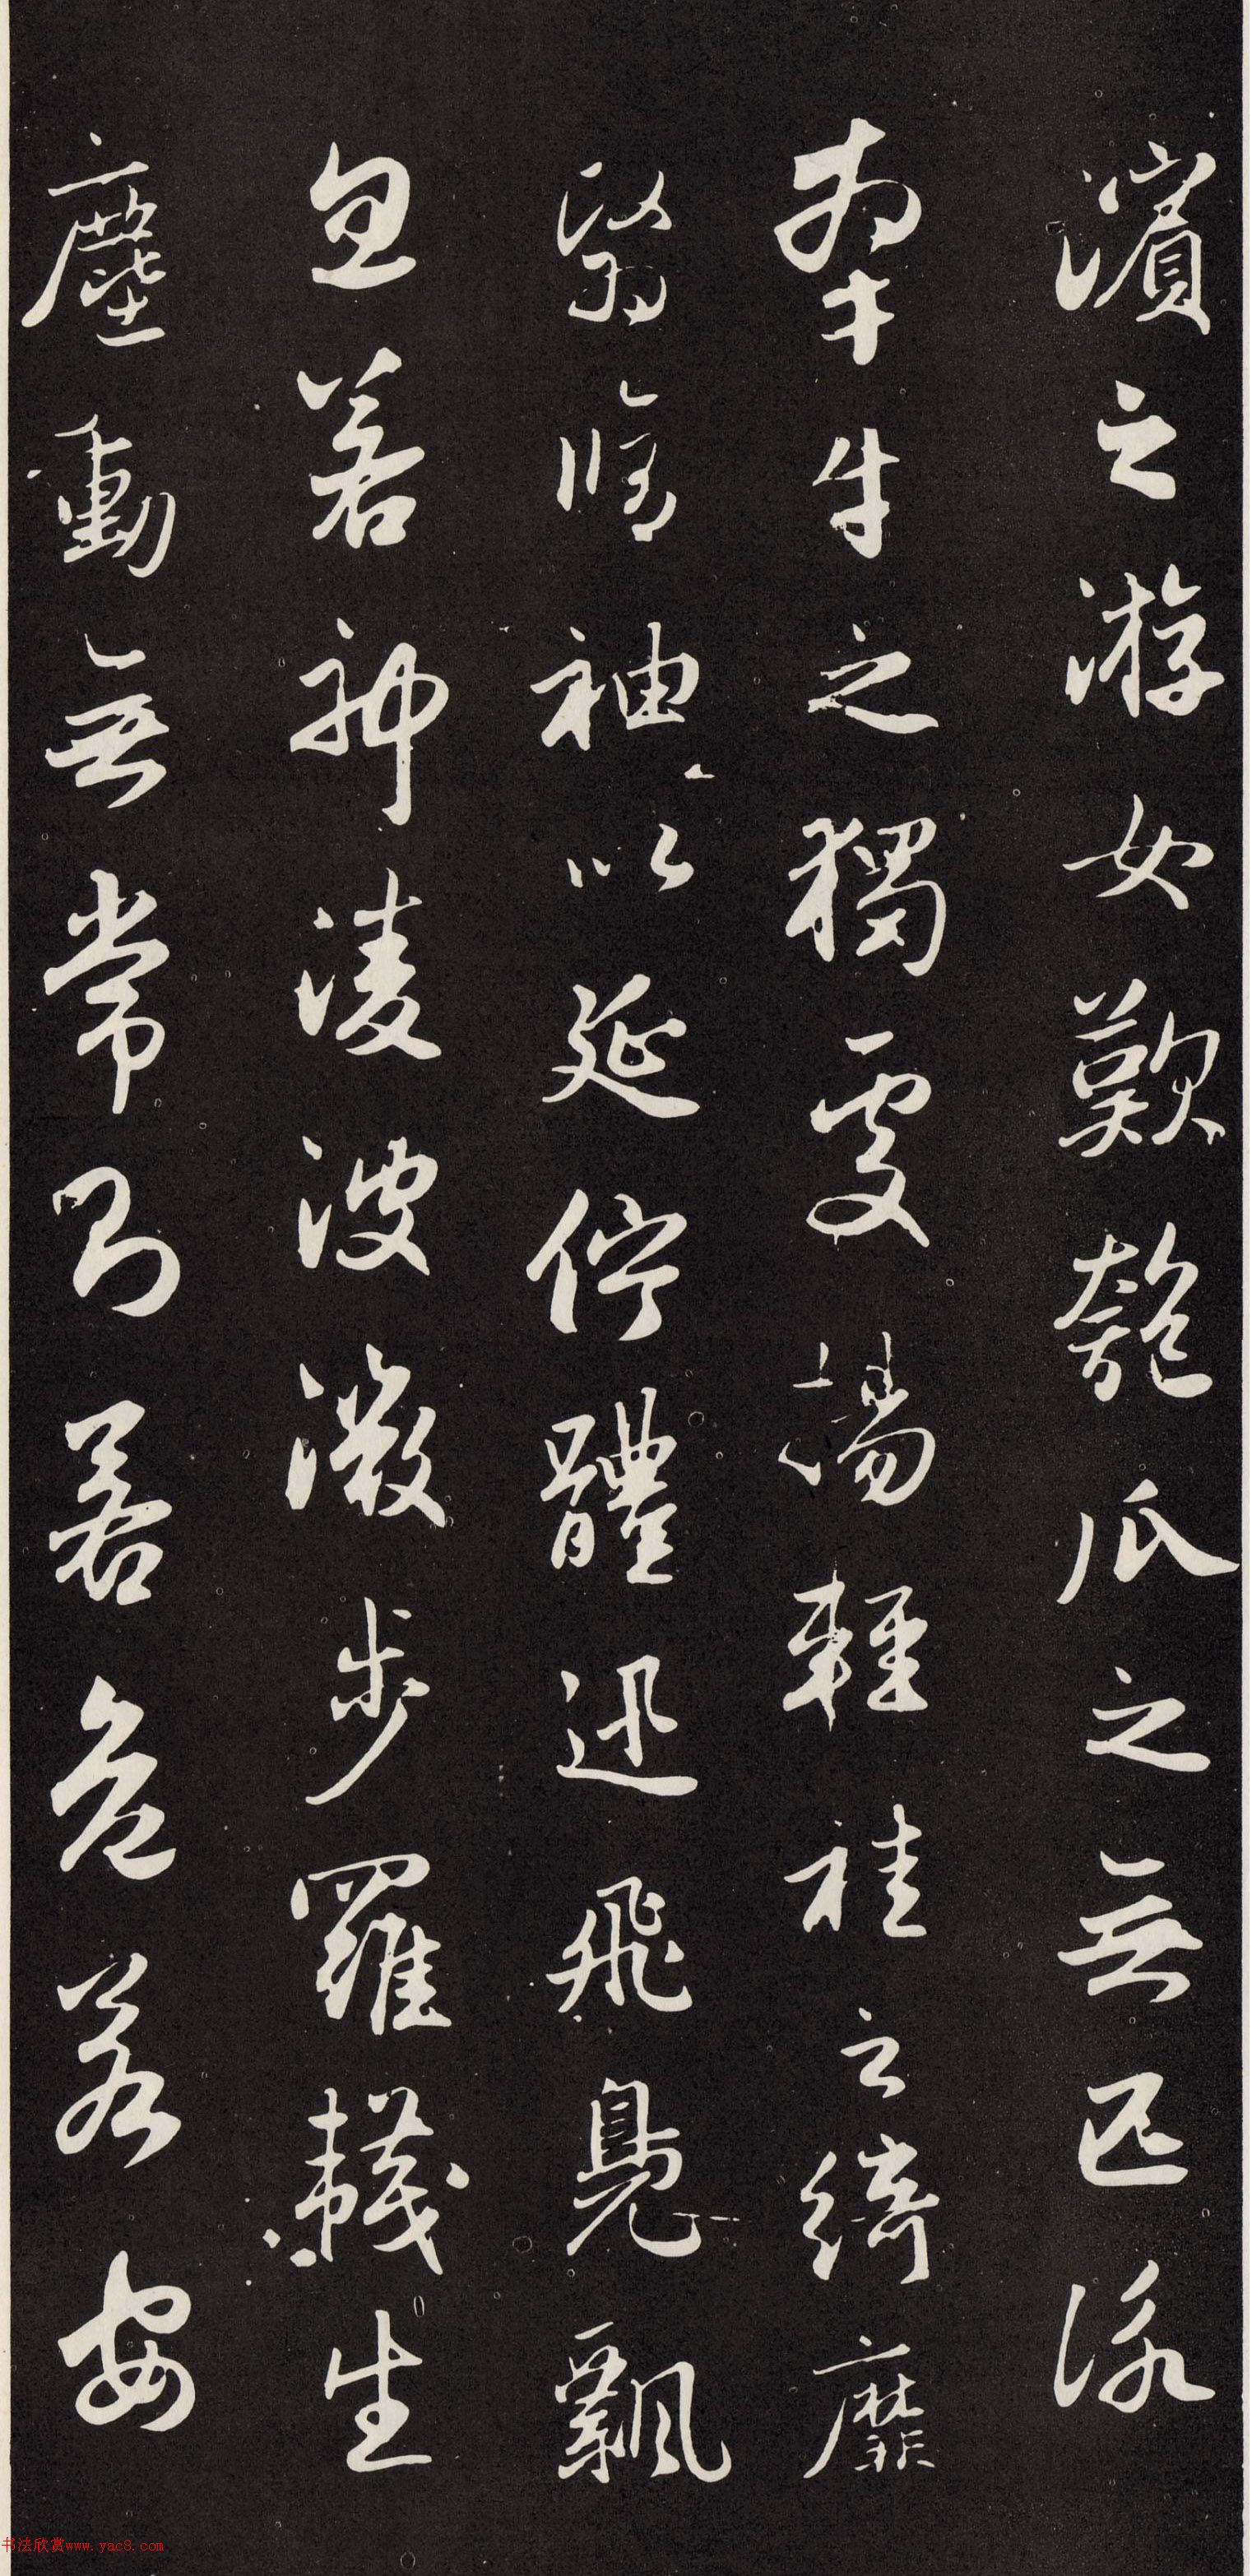 濱之游女歎匏瓜之無匹詠
牽牛之獨處揚輕袿之綺靡
翳脩袖以延佇體迅飛鳧飄
忽若神淩波微步羅韈生
塵動無常則若危若安
书法欣赏www.yac8.com